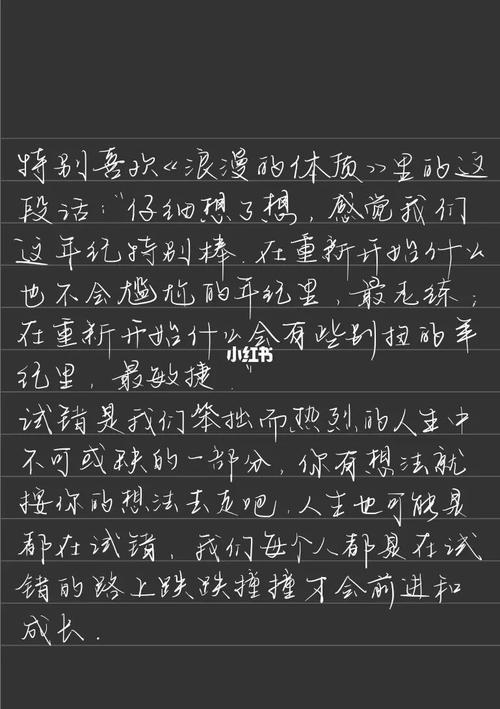 特别喜欢《浪漫的体质》里的这
段话："仔细想了想，感觉我们
这年纪特别棒.在重新开始什么
也不会尴尬的年纪里，最老练；
在重新开始什么会有些别扭的年
纪里，最敏捷."
小红书
试错是我们笨拙而热烈的人生中
不可或缺的一部分，你有想法就
按你的想法去走吧.人生也可能是
都在试错，我们每个人都是在试
错的路上跌跌撞撞才会前进和
成长.